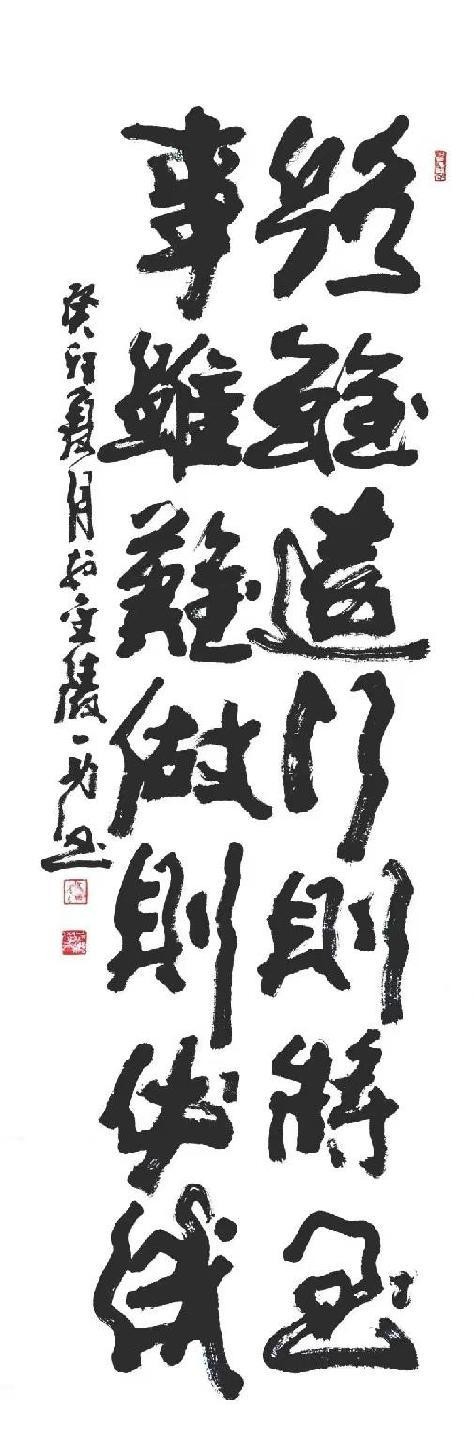 路雖遠行則將至
事雖難做則必成
癸卯夏月於金陵一